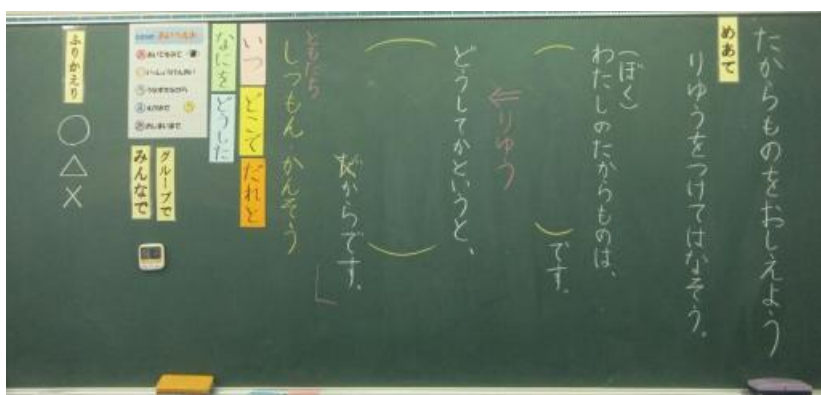 たからものをおしえよう
めあて
りゆうをつけてはなそう。
(ぼく)
わたしのたからものは、
です。
⇐りゆう
どうしてかというと、
だからです。」
ともだち
しつもん かんそう
いつ
どこで
だれと
なにを
どうした
グループで
みんなで
ふりかえり
○
△
×